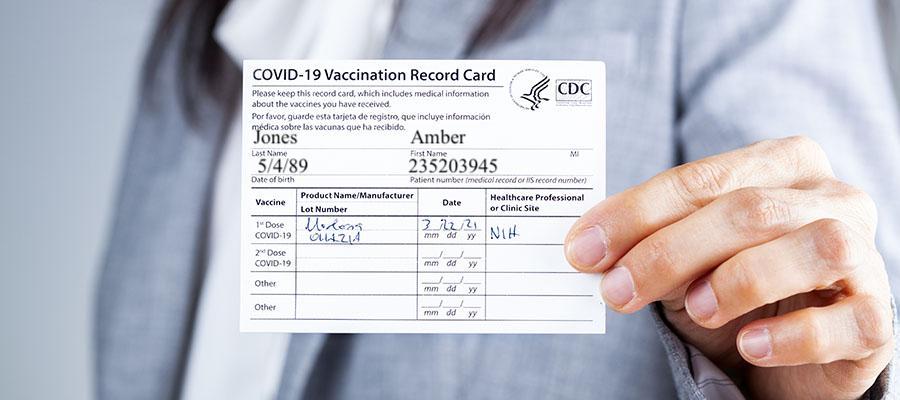 COVID-19 Vaccination Record Card
CDC
Please keep this record card, which includes medical information
about the vaccines you have received.
Por favor, guarde esta tarjeta de registro, que incluye información
médica sobre las vacunas que ha recibido.
Jones Amber
Last Name First Name MI
5/4/89 235203945
Date of birth Patient number (medical record or IIS record number)
Vaccine Product Name/Manufacturer Date Healthcare Professional
Lot Number or Clinic Site
1st Dose
COVID-19 mm dd yy NIH
2nd Dose
COVID-19 mm dd yy
Other
mm dd yy
Other
mm dd yy